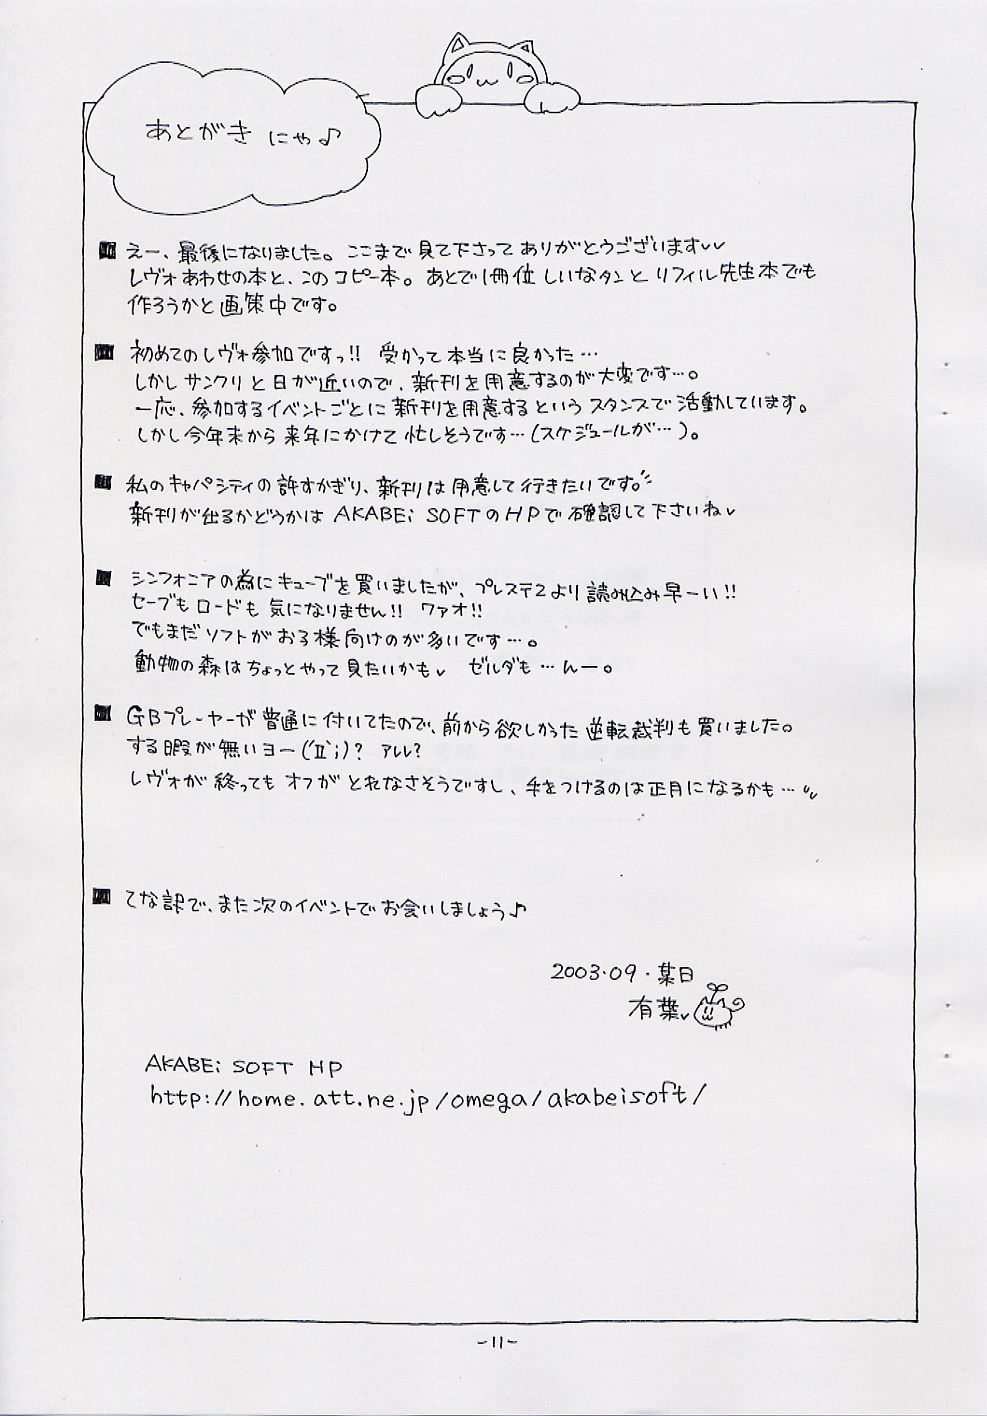 あとがき にゃ♪
■ えー、最後になりました。ここまで見て下さってありがとうございます♥♥
レヴォあわせの本と、このコピー本。あとで1冊位しいなタンとリフィル先生本でも
作ろうかと画策中です。
■ 初めてのレヴォ参加ですっ!! 受かって本当に良かった…
しかしサンクリと日が近いので、新刊を用意するのが大変です…。
一応、参加するイベントごとに新刊を用意するというスタンスで活動しています。
しかし今年末から来年にかけて忙しそうです…(スケジュールが…)。
■ 私のキャパシティの許すかぎり、新刊は用意して行きたいです。
新刊が出るかどうかは AKABEi SOFTのHPで確認して下さいね♥
■ シンフォニアの為にキューブを買いましたが、プレステ2より読み込み早ーい!!
セーブもロードも気になりません!! ワァオ!!
でもまだソフトがお子様向けのが多いです…。
動物の森はちょっとやって見たいかも♥ ゼルダも…んー。
■ GBプレーヤーが普通に付いてたので、前から欲しかった逆転裁判も買いました。
する暇が無いヨー(´Д`;)? アレレ?
レヴォが終ってもオフがとれなさそうですし、手をつけるのは正月になるかも…
■ てな訳で、また次のイベントでお会いしましょう♪
2003.09.某日
有葉♥
AKABEi SOFT HP
http://home.att.ne.jp/omega/akabeisoft/
-11-